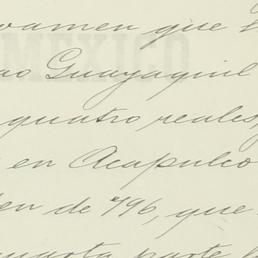 vamen que
MEXICO
Guayaquil
quatro reales,
en Acapulco
de 796, que
quarta parte